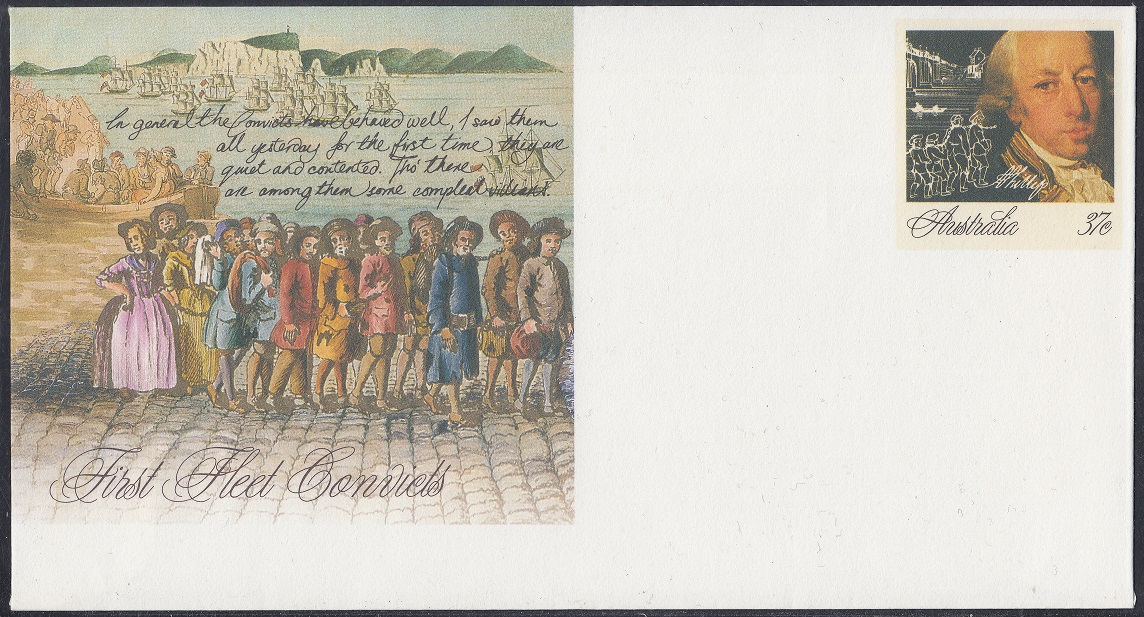 In general the Convicts have behaved well, I saw them
all yesterday for the first time, they are
quiet and contented. Tho' there
are among them some compleat villians.
First Fleet Convicts
APhillip
Australia
37c